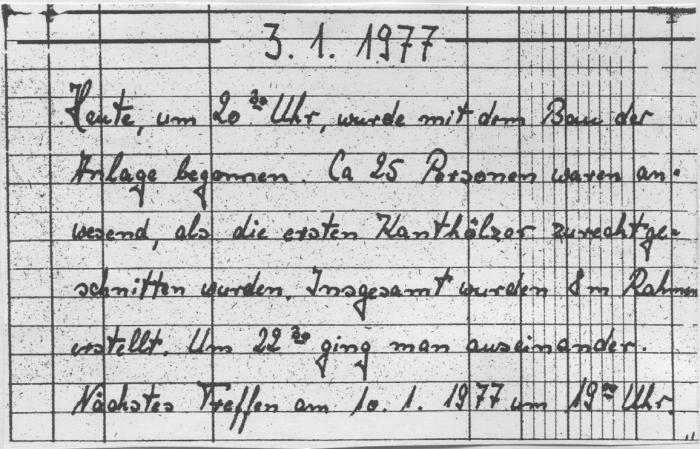 3. 1. 1977
Heute, um 20 30 Uhr, wurde mit dem Bau der
Anlage begonnen. Ca 25 Personen waren an-
wesend, als die ersten Kanthölzer zurechtge-
schnitten wurden. Insgesamt wurden 8 m Rahmen
erstellt. Um 22 30 ging man auseinander.
Nächstes Treffen am 10. 1. 1977 um 19 00 Uhr.